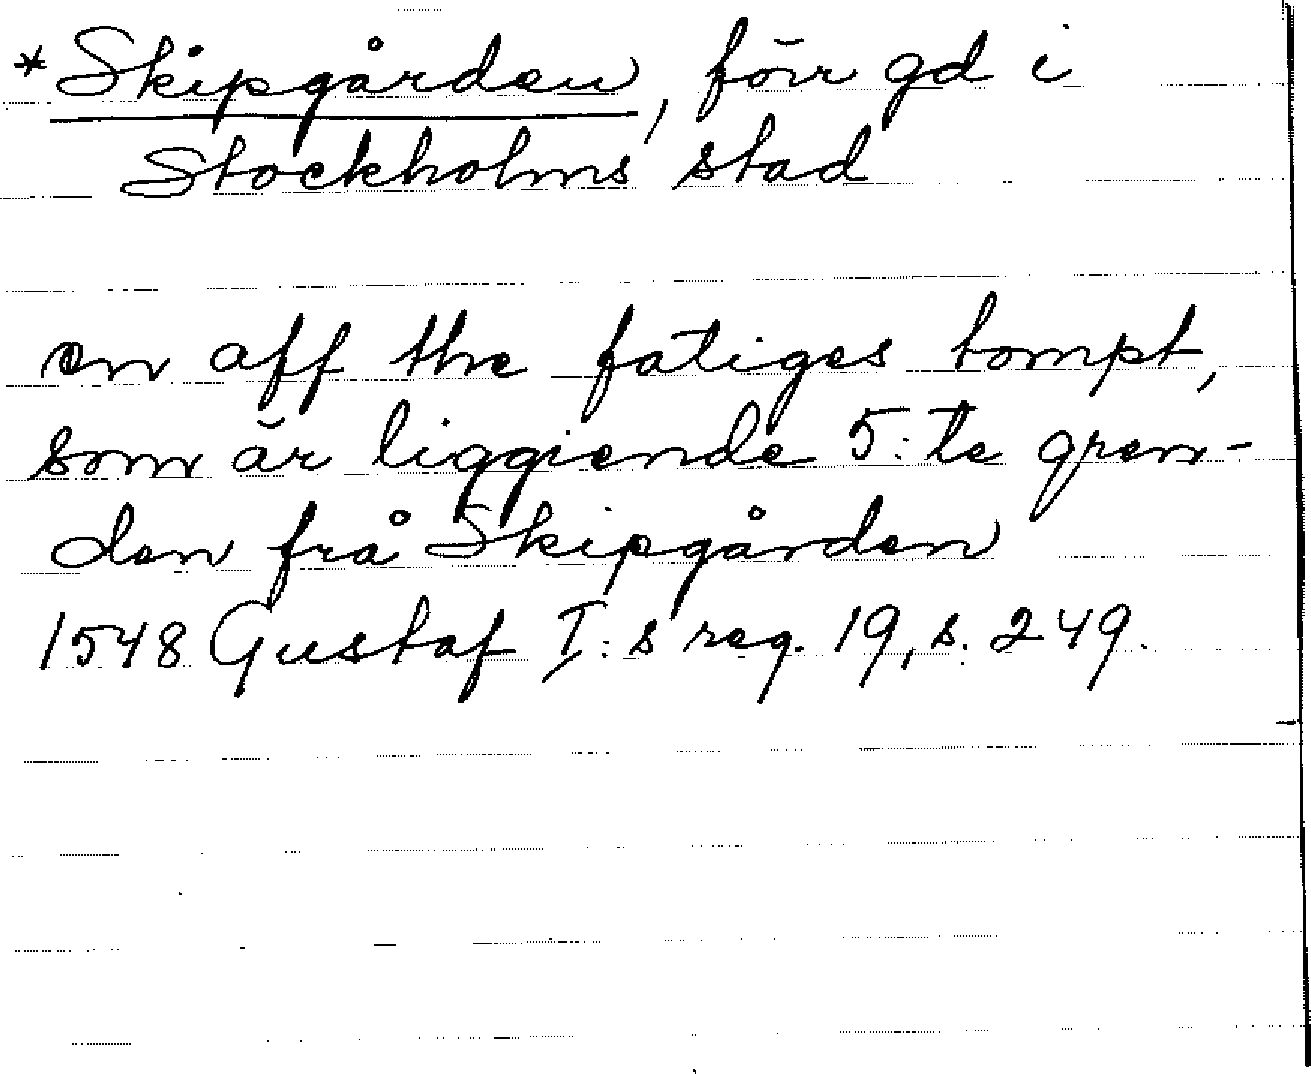 *Skipgården, förr gd i
Stockholms stad
en aff the fatiges tompt,
som är liggiende 5:te gren-
den frå Skipgården
1548 Gustaf I:s reg. 19, s. 249.